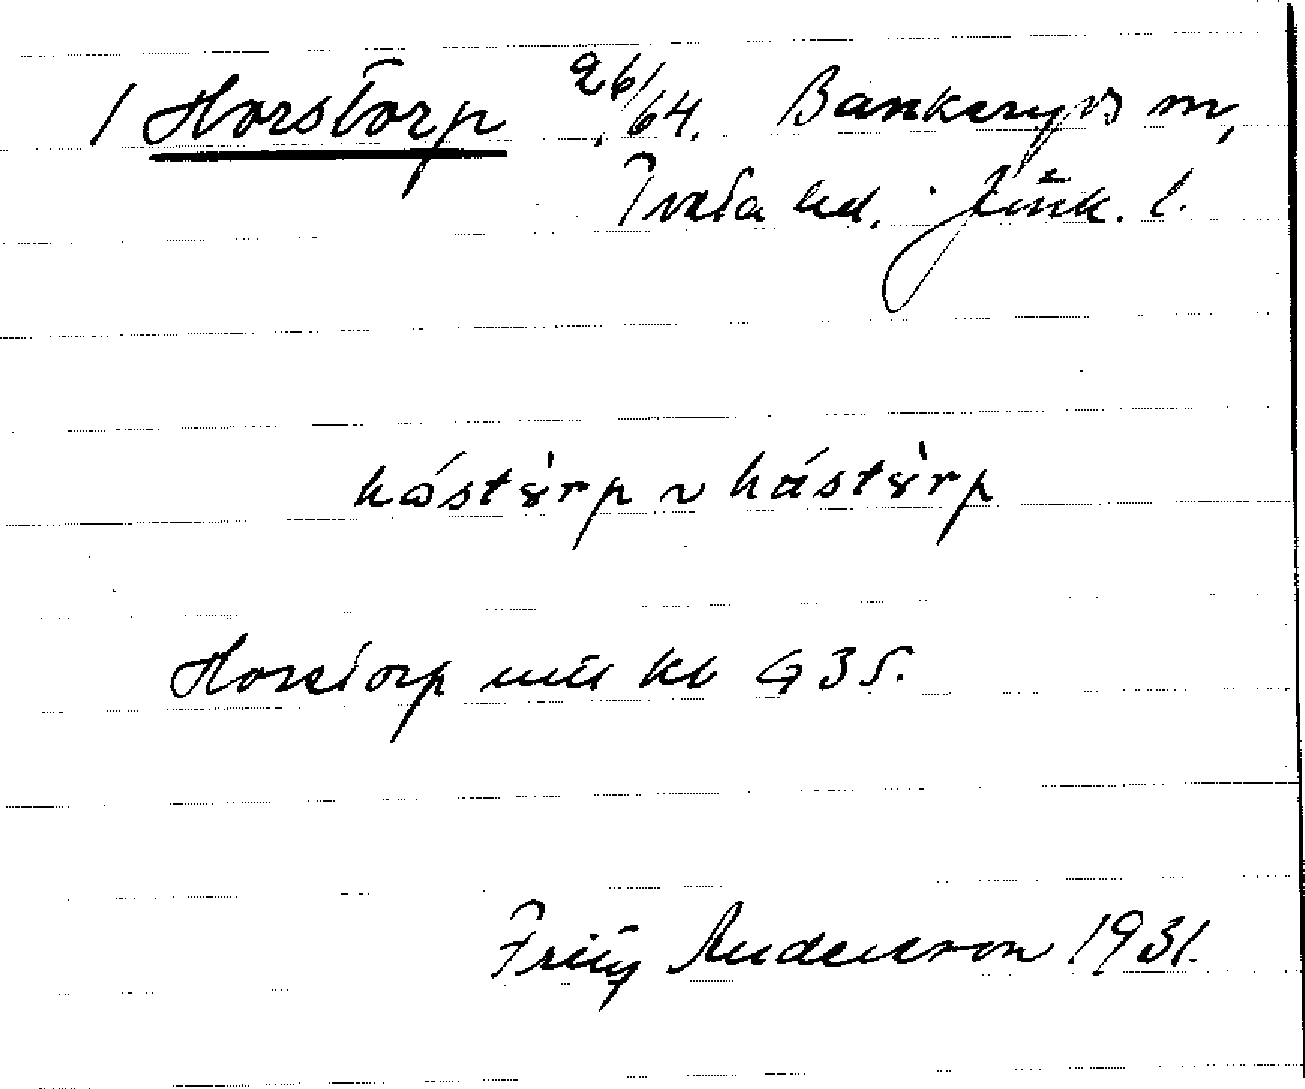 1 Horstorp 26/64. Bankeryds sn,
Tveta hd. Jönk. l.
hástɤ̀rp ~ hástɤ̀rp
Horstorp mtl kb 935.
Fritz Andersson 1931.